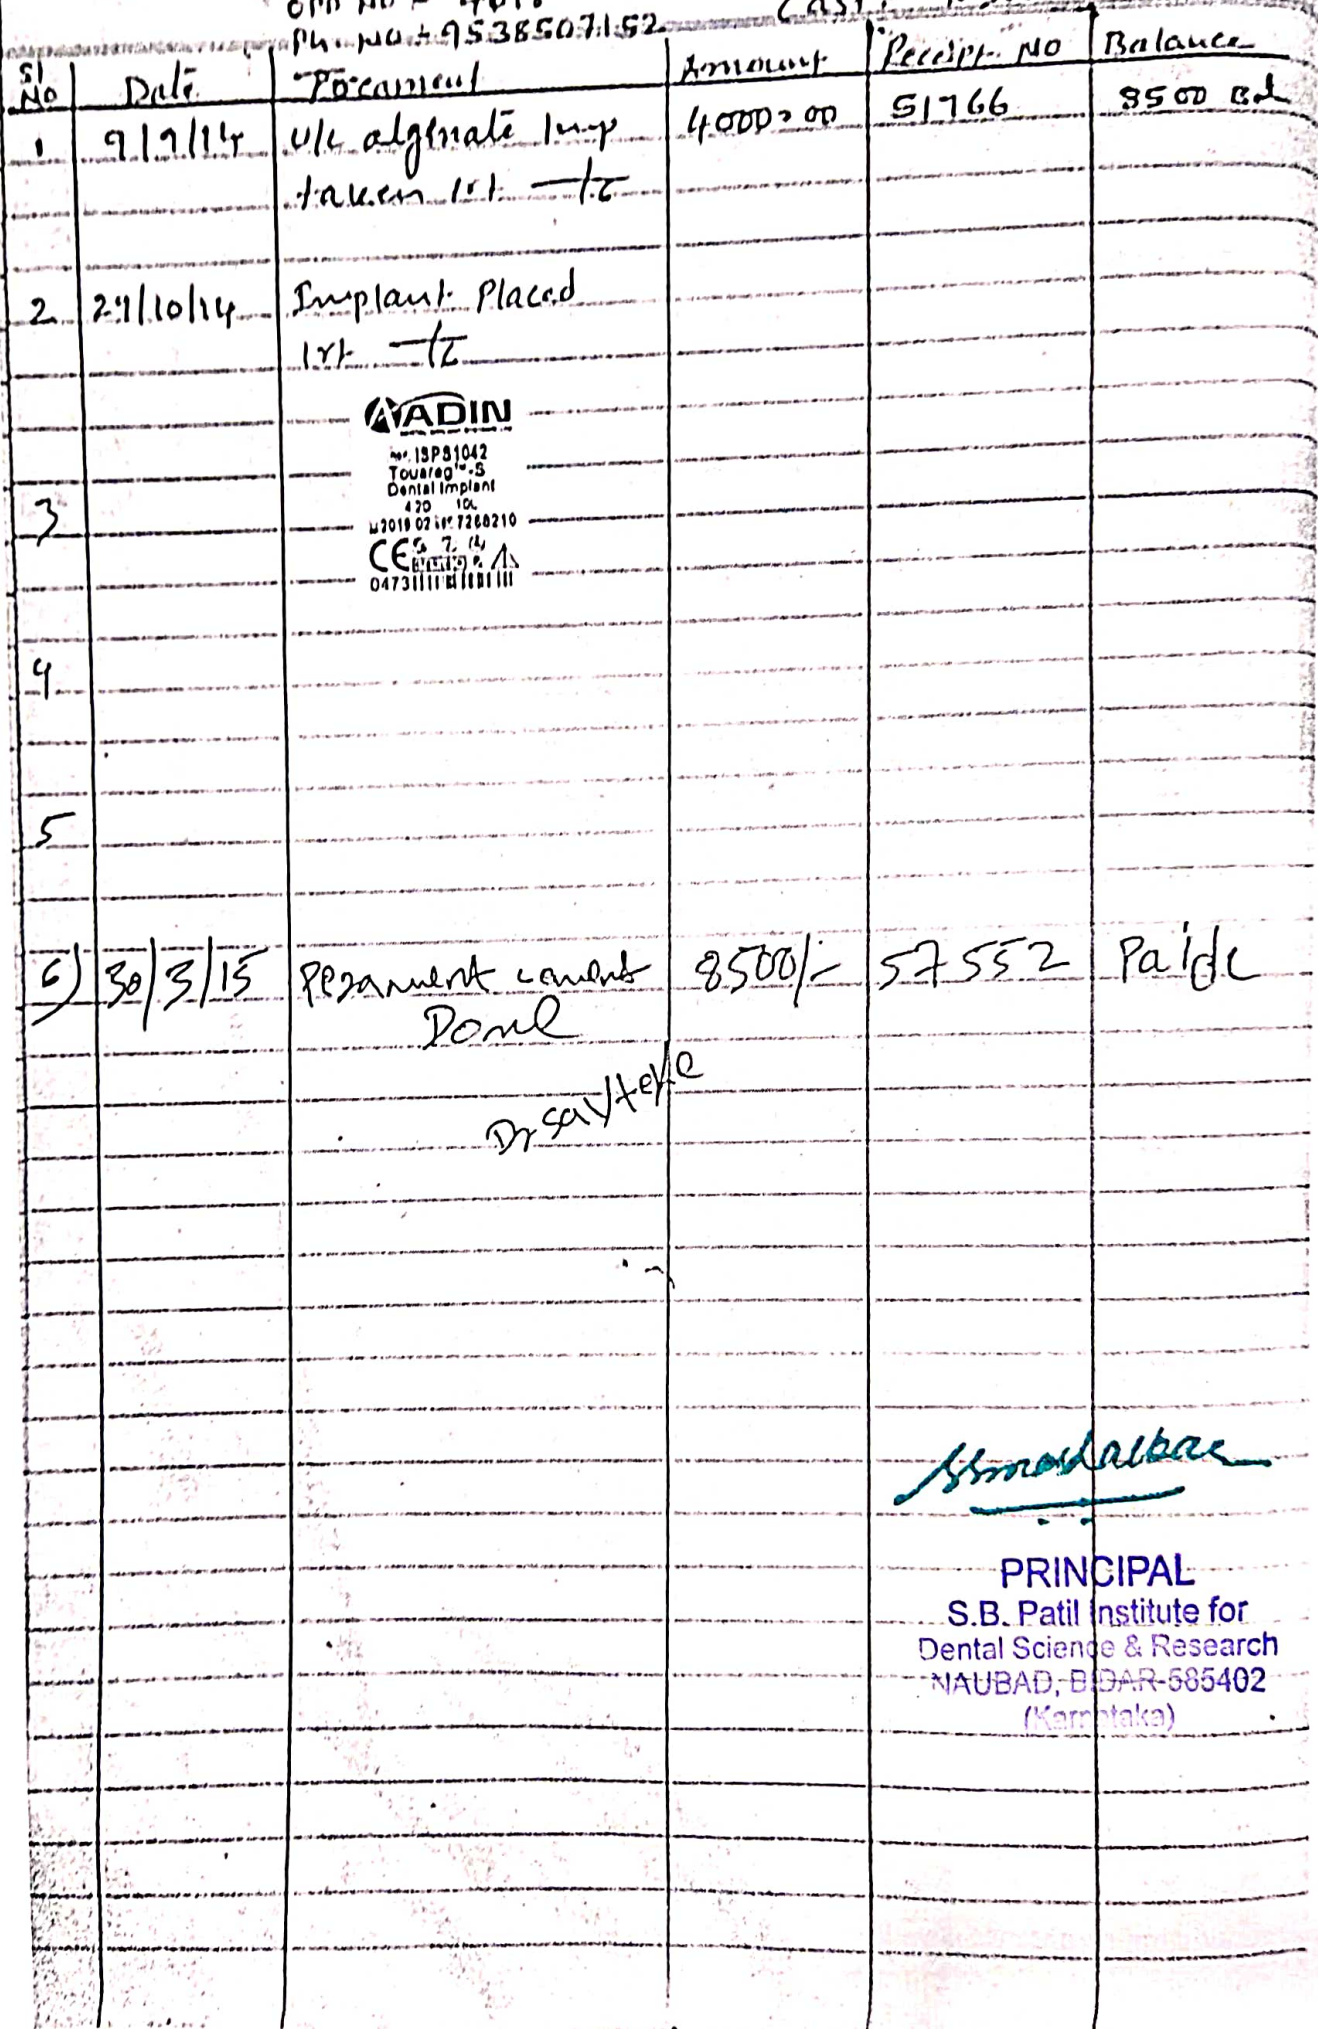 OPD NO
Ph. NO : 9538507152
Sl No Date Treatment Amount Receipt NO Balance
1 9/9/14 U/L alginate Imp 4000=00 51766 8500 Bal
taken irt
2 29/10/14 Implant Placed
irt
AADIN
ISPS1042
Touareg™-S
Dental Implant
420 10L
7260210
3
CE
0473
4
5
6) 30/3/15 Perament cement 8500/- 57552 Paid
Done
Dr
PRINCIPAL
S.B. Patil Institute for
Dental Science & Research
NAUBAD, BIDAR-585402
(Karnataka)